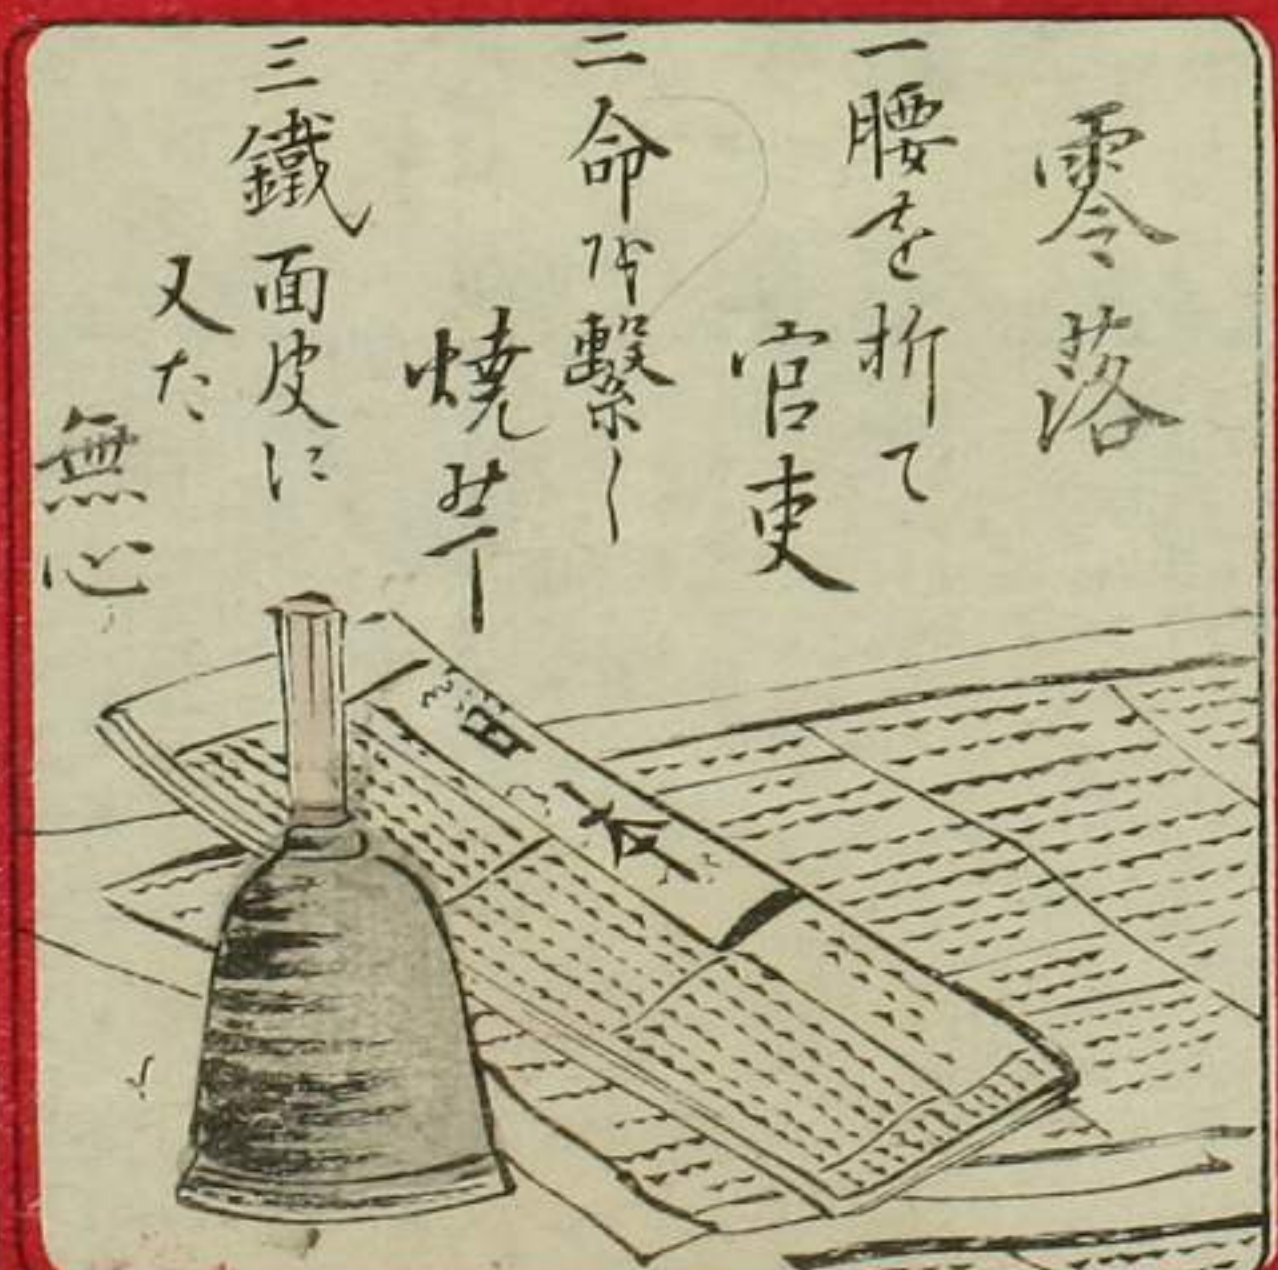 零落
一腰を折て
官吏
二命を繋く
焼芋
三鐵面皮に
又た
無心
日本